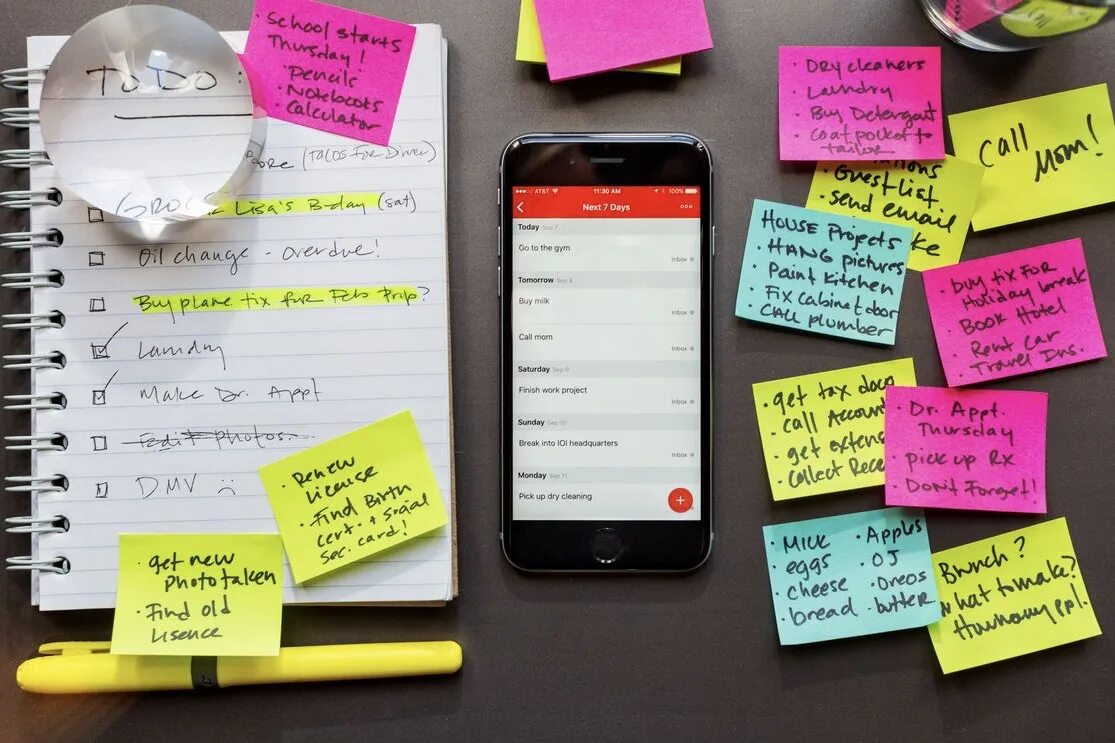 To Do:
School starts
Thursday!
• Pencils
• Notebooks
• Calculator
(tacos for Dinner)
Lisa's B-day (sat)
Oil change - overdue!
Buy plane tix for Feb trip?
Laundry
Make Dr. Appt
Edit Photos
DMV
• Renew
License
• Find Birth
cert. + social
sec. card!
• get new
photo taken
• Find old
lisence
AT&T
11:30 AM
100%
Next 7 Days
Today Sep 7
Go to the gym
Inbox
Tomorrow Sep 8
Buy milk
Inbox
Call mom
Inbox
Saturday Sep 9
Finish work project
Inbox
Sunday Sep 10
Break into IOI headquarters
Inbox
Monday Sep 11
Pick up dry cleaning
• Dry cleaners
• Laundry
• Buy Detergent
• coat pocket to
tailor
Call
Mom!
• Guest List
• send email
HOUSE Projects
• HANG pictures
• Paint kitchen
• Fix cabinet door
• CALL plumber
• Buy tix for
Holiday break
• Book Hotel
• Rent Car
• Travel Ins.
• get tax docs
• call Account
• get extens
• Collect Rece
• Dr. Appt.
Thursday
• pick up Rx
• Don't Forget!
• Milk
• eggs
• cheese
• bread
• Apples
• OJ
• Oreos
• butter
Brunch?
what to make?